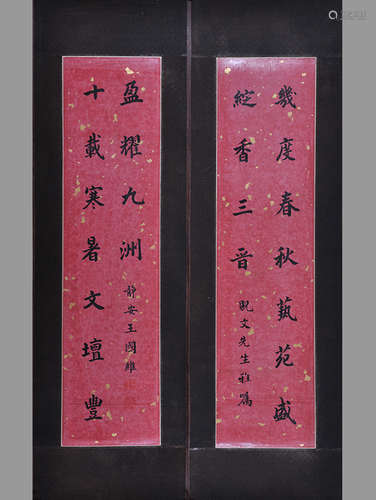 幾度春秋藝苑盛
綻香三晉
觀文先生雅屬
十載寒暑文壇豐
盈耀九洲
靜安王國維